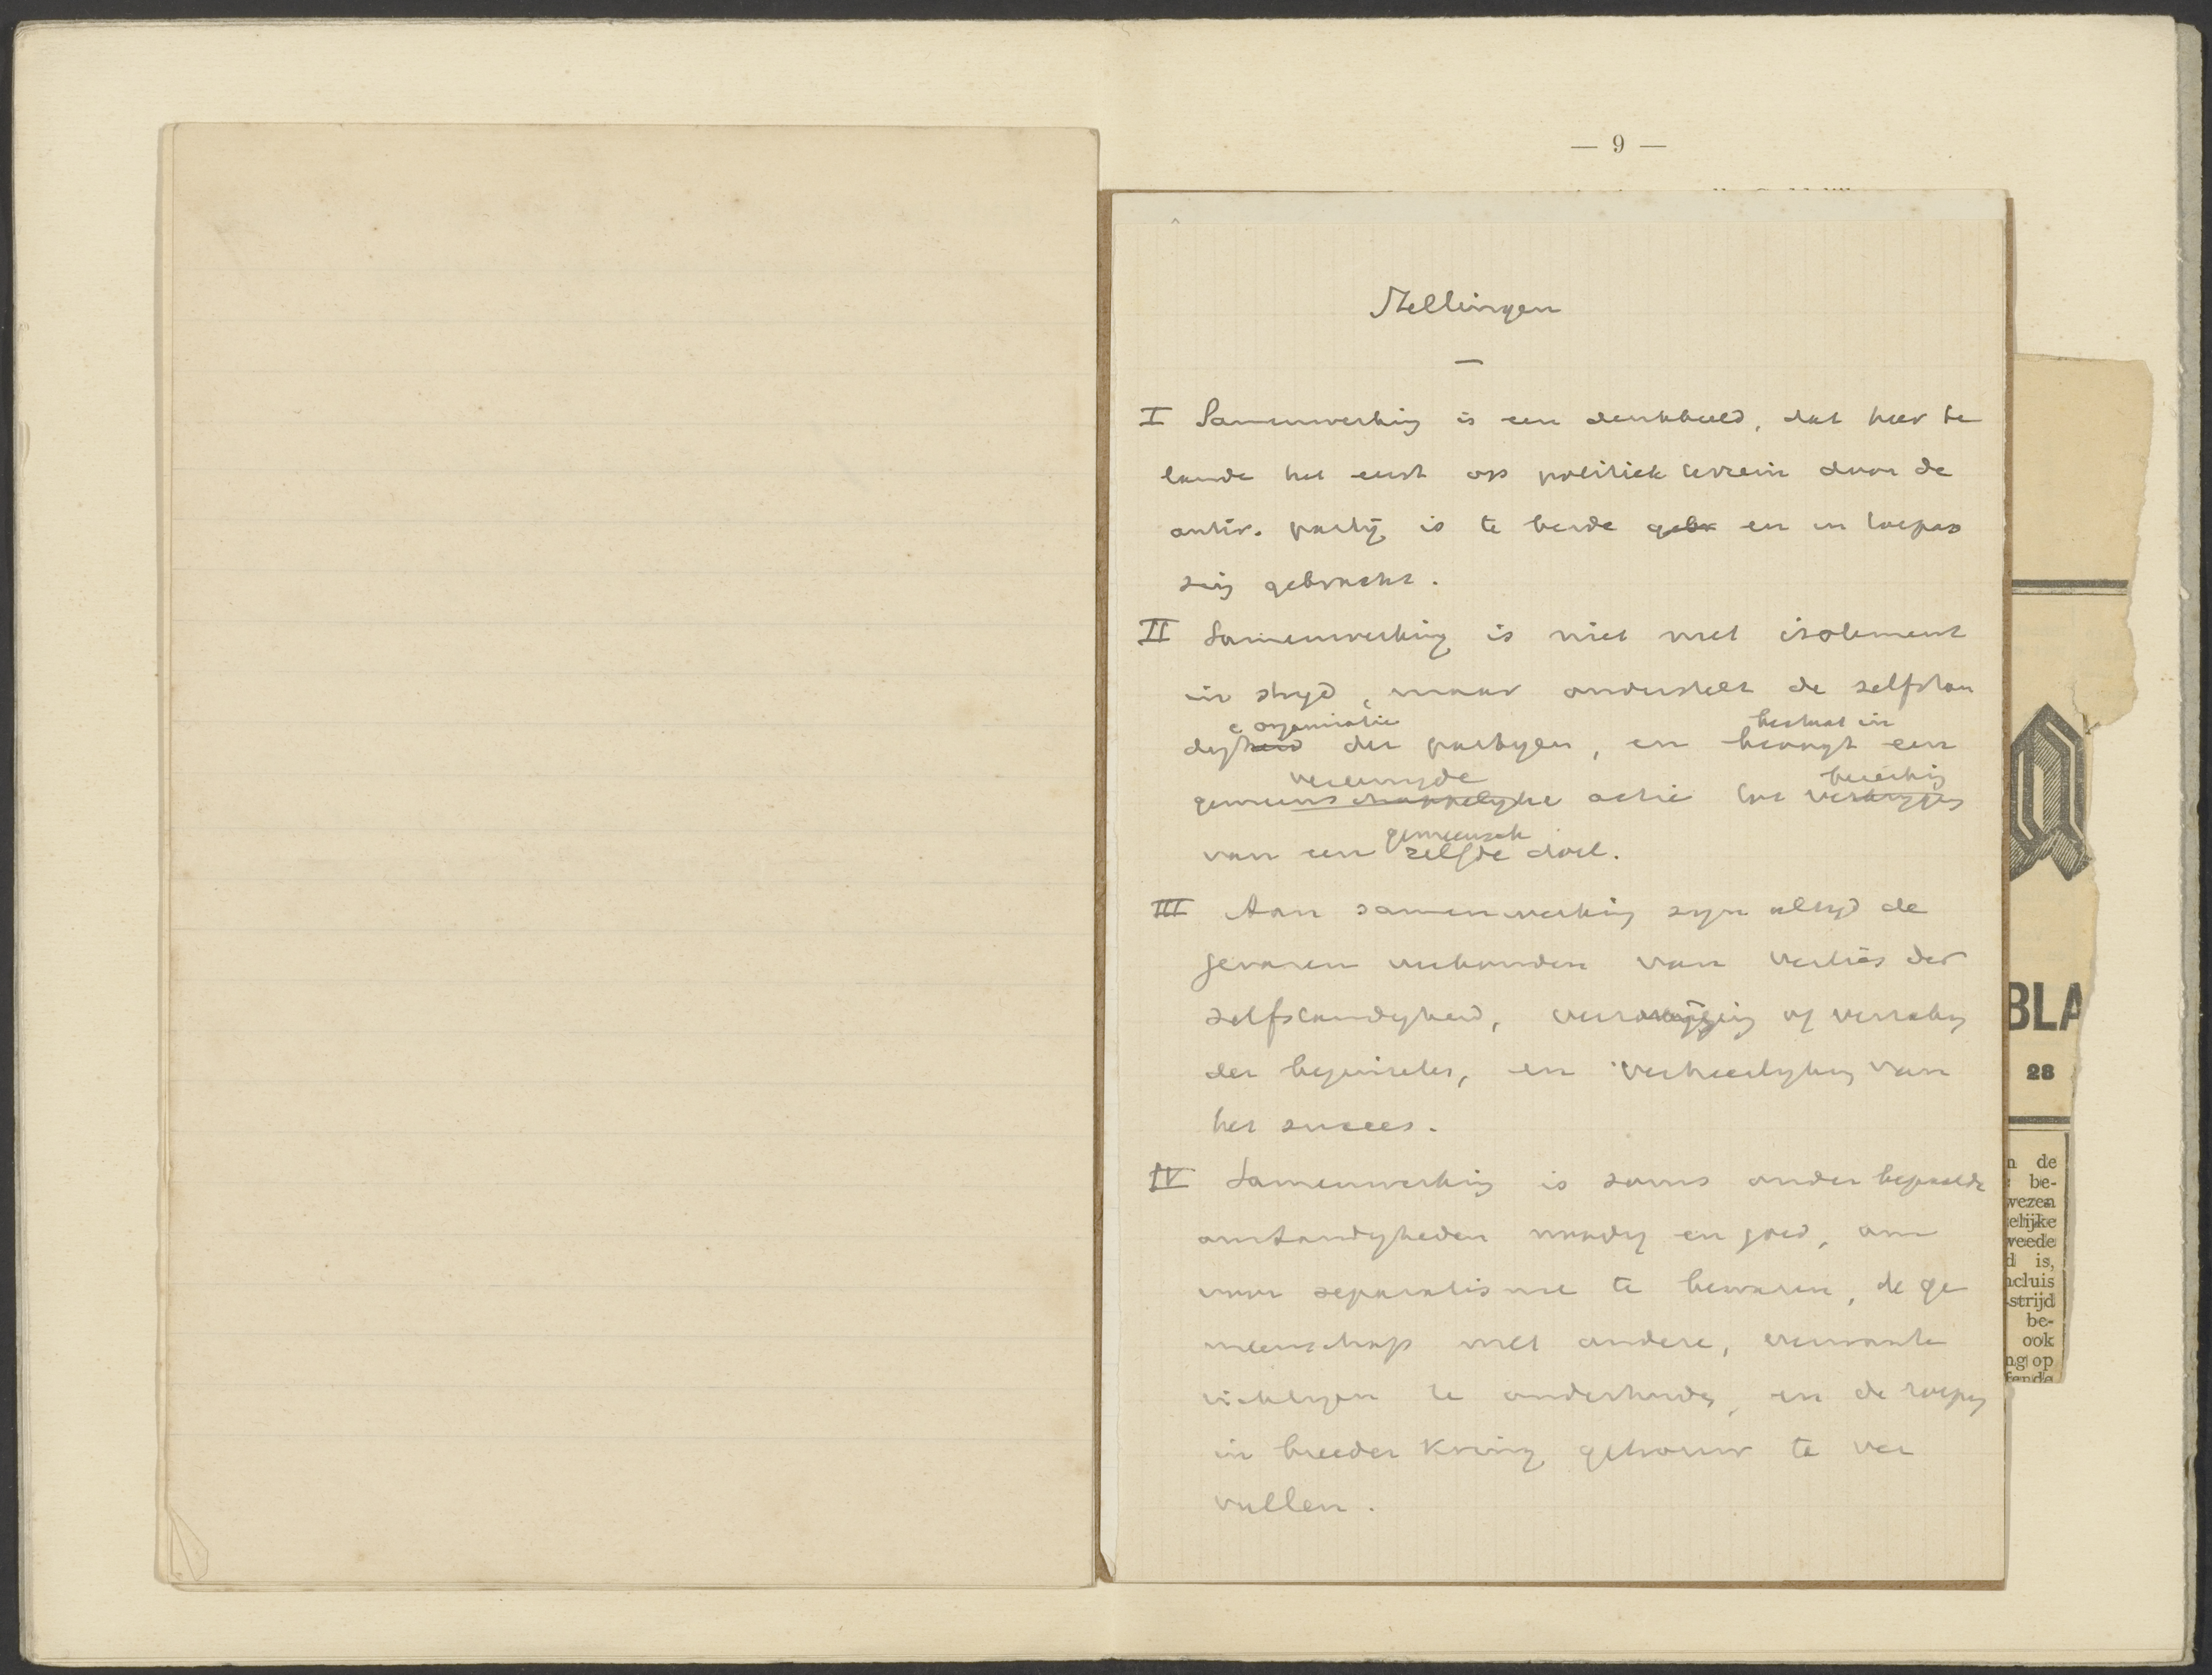 — 9 —
Stellingen
—
I Samenwerking is een denkbeeld, dat hier te
lande het eerst op politiek terrein door de
antir. partij is te berde gebr en in toepas
sing gebracht.
II Samenwerking is niet met isolement
in stryd, maar onderstelt de zelfstan
e organisatie bestaat in
digheid der partyen, en beoogt een
vereenigde bereiking
gemeenschappelyke actie tot verkryging
gemeensch
van een zelfde doel.
III Aan samenwerking zyn altyd de
gevaren verbonden van verlies der
zelfstandigheid, of verzaking
der beginselen, en verheerlyking van
het succes.
IV Samenwerking is soms onder bepaalde
omstandigheden noodig en goed, om
voor separatisme te bewaren, de ge
meenschap met andere, verwante
richtingen te onderhouden, en de roeping
in breeder kring getrouw te ver
vullen.
BLA
28
n de
be-
wezen
elijke
weede
d is,
ncluis
strijd
be-
ook
ng op
fende